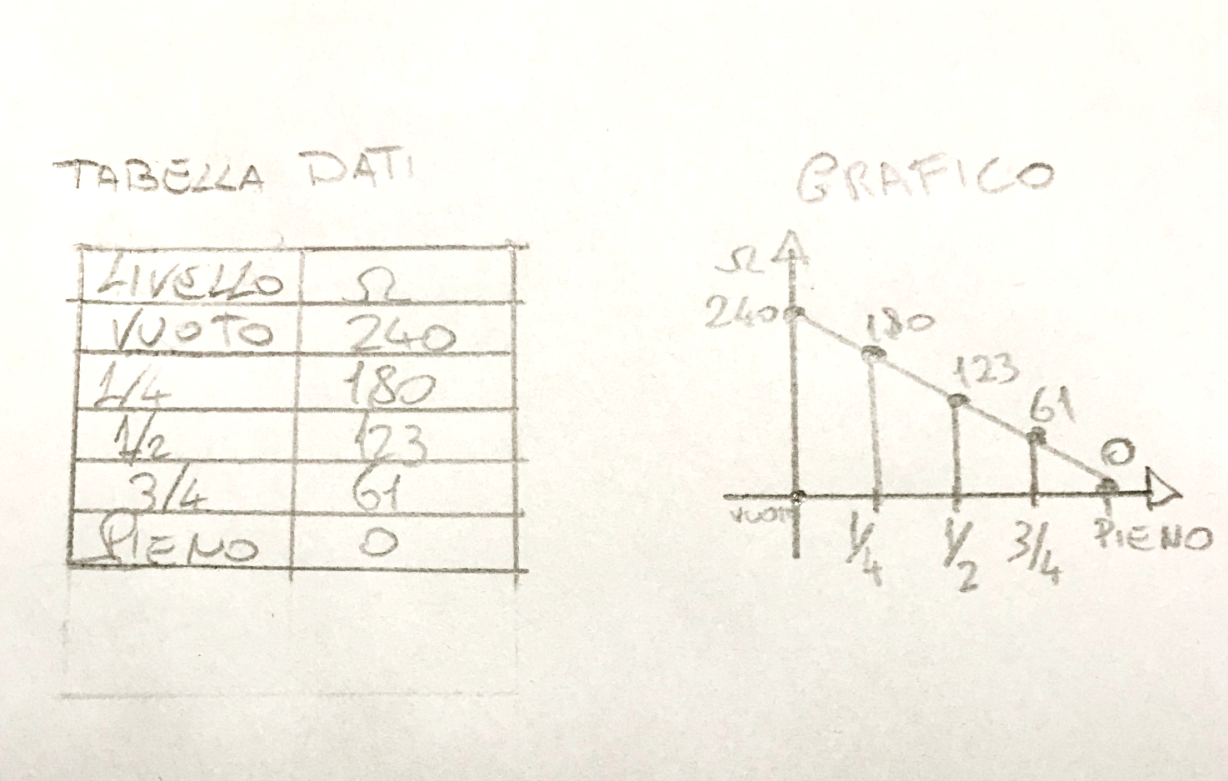 TABELLA DATI
LIVELLO Ω
VUOTO 240
1/4 180
1/2 123
3/4 61
PIENO 0
GRAFICO
Ω
240
180
123
61
0
VUOTO 1/4 1/2 3/4 PIENO